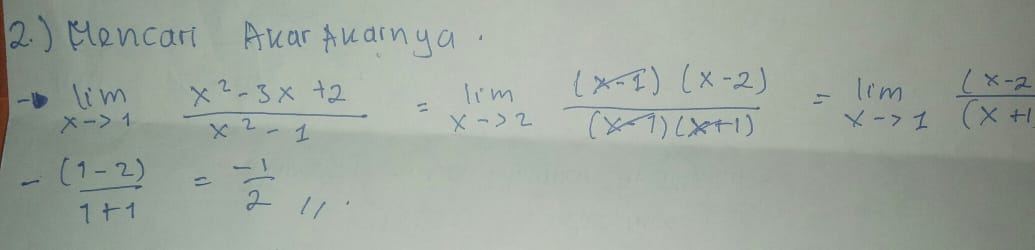 2.) Mencari Akar Akarnya.
→ lim x->1 x²-3x+2 / x²-1 = lim x->2 (x-1)(x-2) / (x-1)(x+1) = lim x->1 (x-2) / (x+1
- (1-2) / 1+1 = -1 / 2 //.